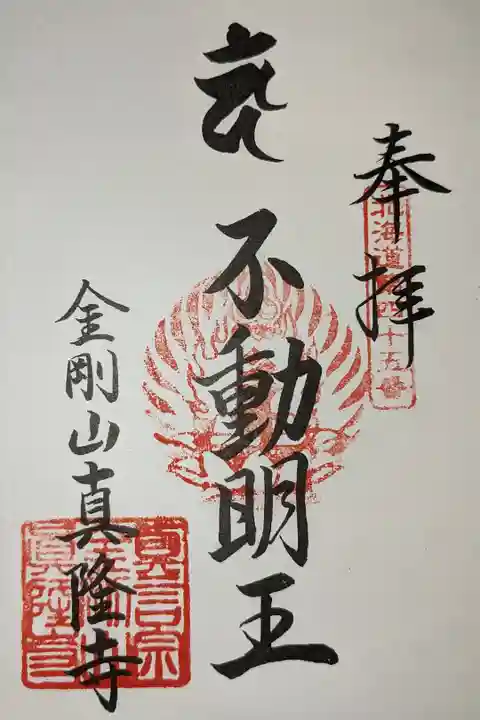 奉拝
北海道第四十五番
不動明王
金剛山真隆寺
真言宗